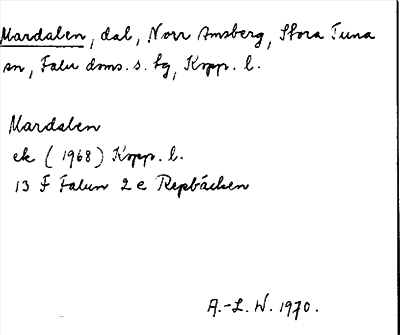 Mardalen, dal, Norr Amsberg, Stora Tuna
sn, Falu doms. s. tg, Kopp. l.
Mardalen
ek (1968) Kopp. l.
13 F Falun 2 e Repbäcken
A.-L. W. 1970.